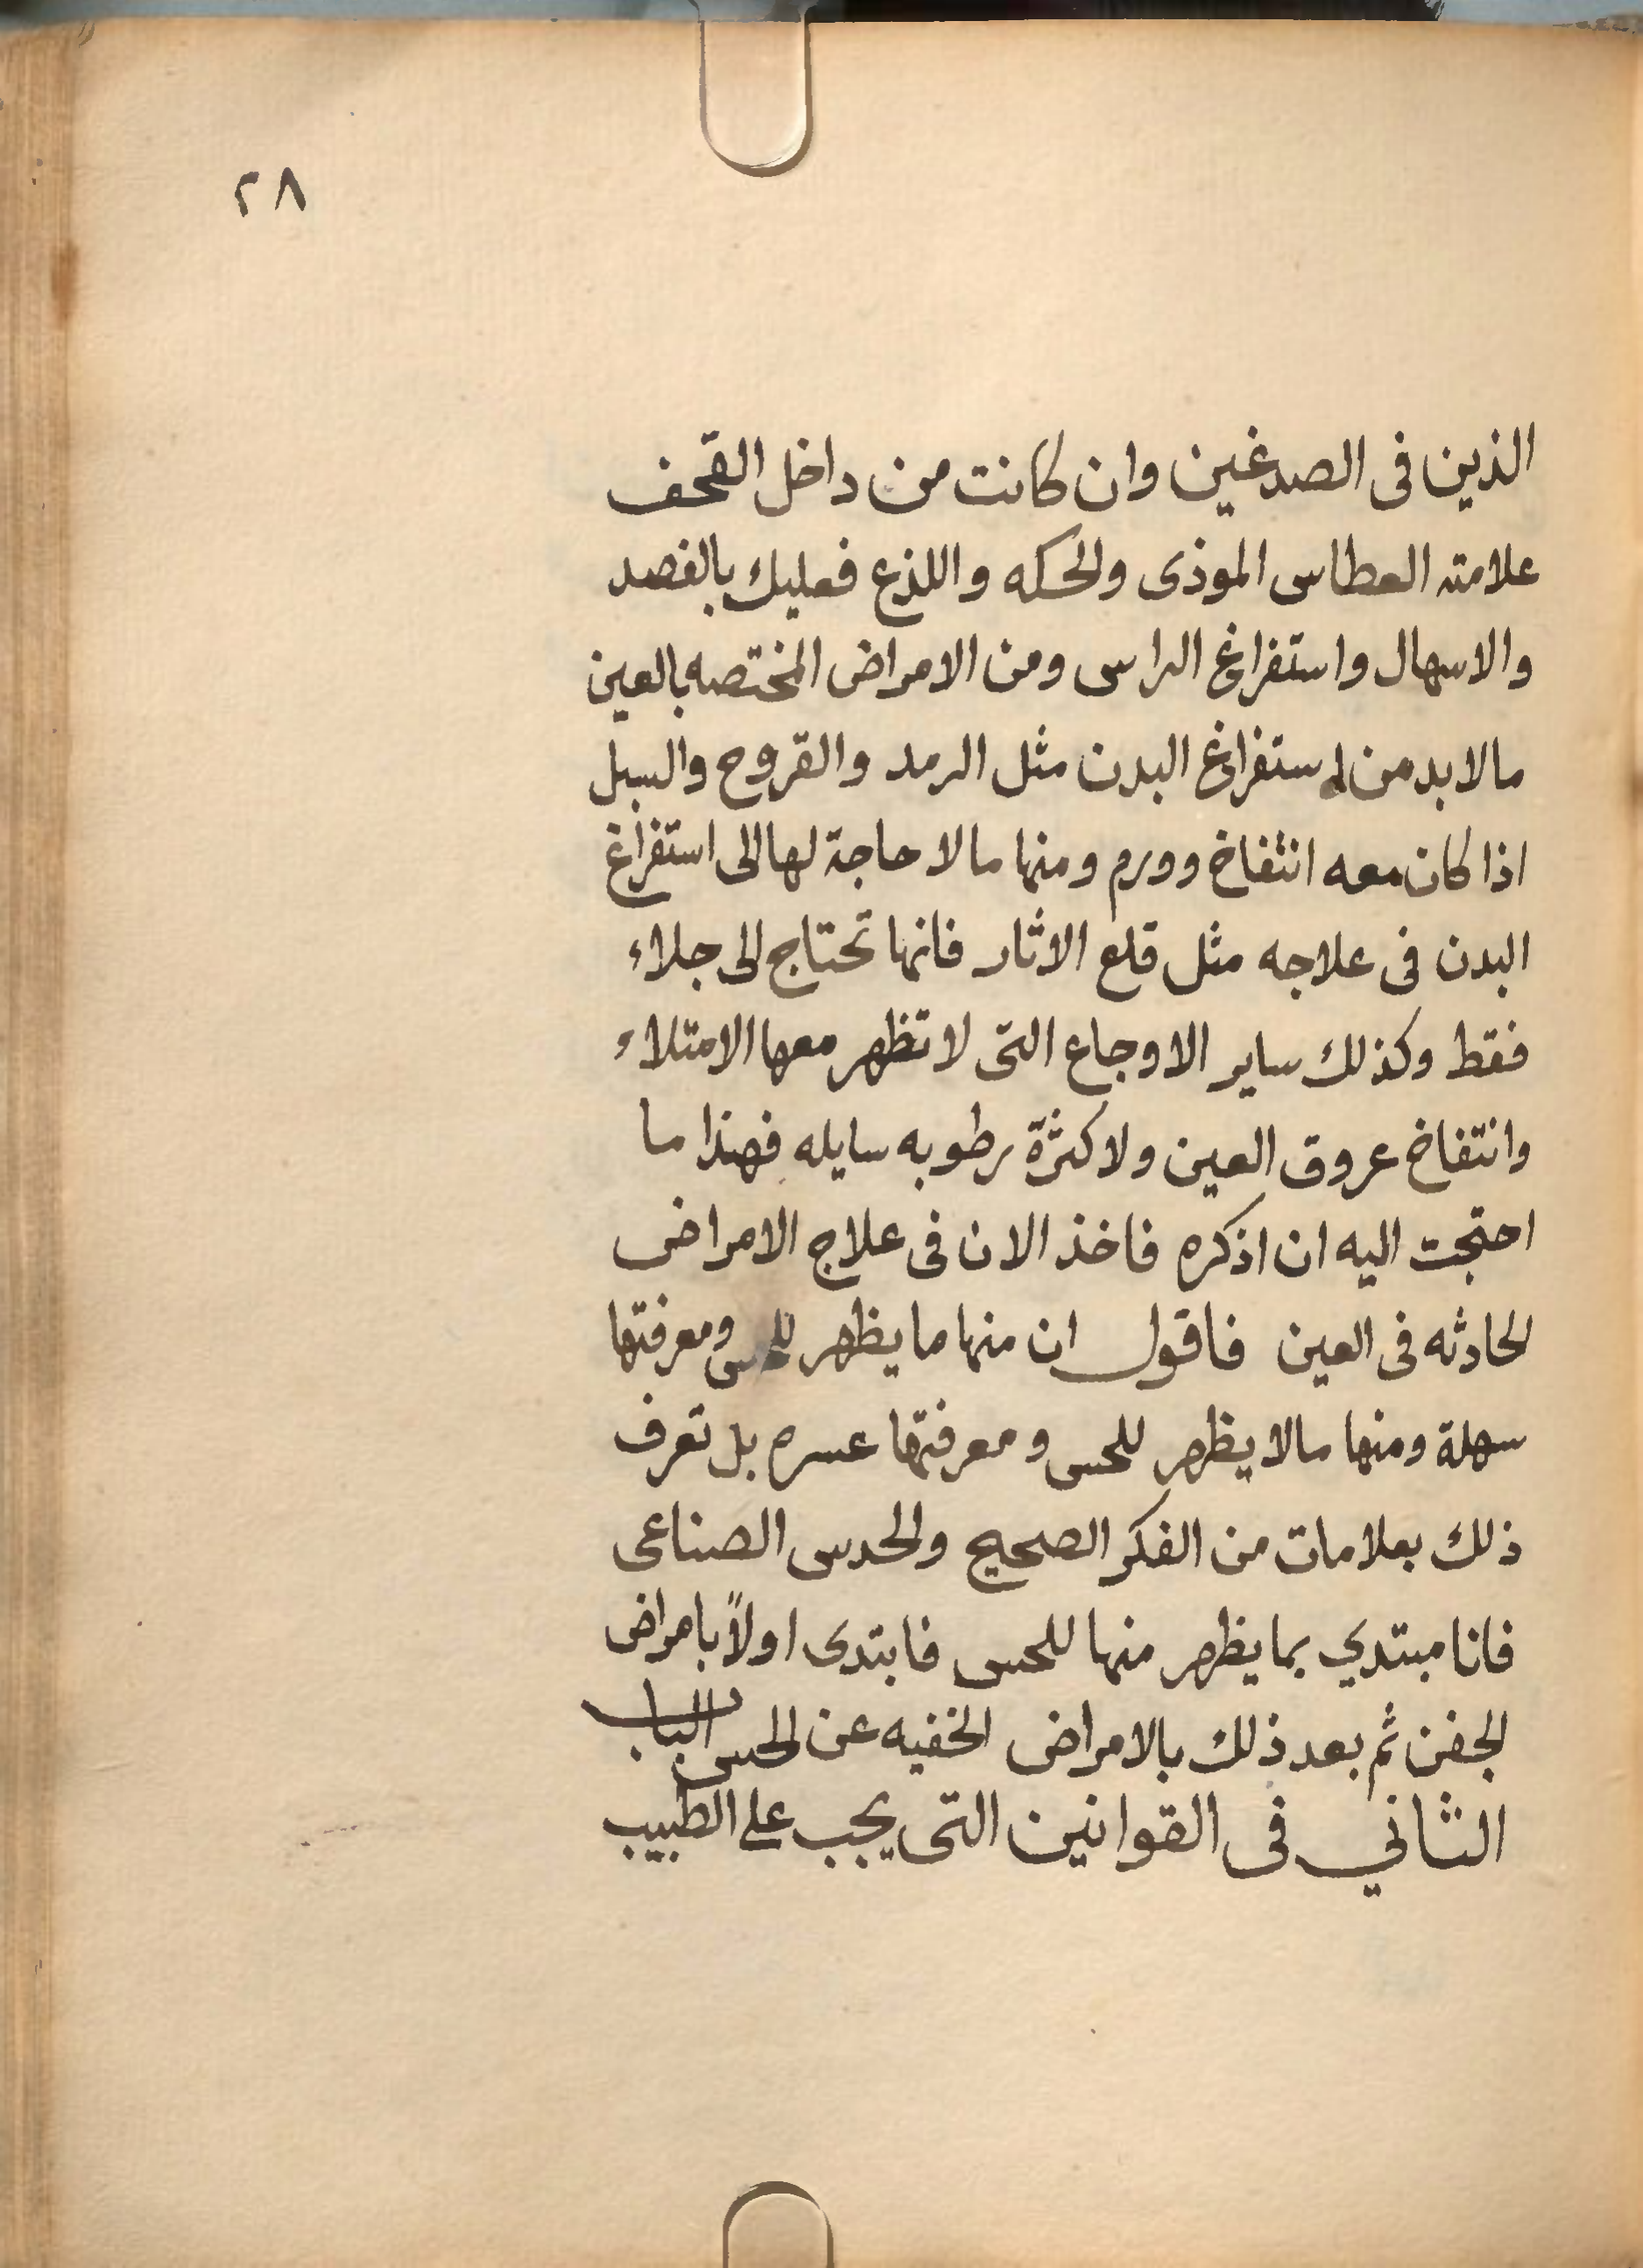 ٢٨
الذين فى الصدغين وان كانت من داخل القحف
علامته العطاس الموذى والحكه واللذع فعليك بالفصد
والاسهال واستفراغ الراس ومن الامراض المختصه بالعين
ما لا بد من استفراغ البدن مثل الرمد والقروح والسبل
اذا كان معه انتفاخ وورم ومنها ما لا حاجة لها الى استفراغ
البدن فى علاجه مثل قلع الاثار فانها تحتاج الى جلاء
فقط وكذلك ساير الاوجاع التى لا تظهر معها الامتلاء
وانتفاخ عروق العين ولا كثرة رطوبه سايله فهذا ما
احتجت اليه ان اذكره فاخذ الان فى علاج الامراض
الحادثه فى العين فاقول ان منها ما يظهر للحس ومعرفتها
سهلة ومنها ما لا يظهر للحس ومعرفتها عسره بل تعرف
ذلك بعلامات من الفكر الصحيح والحدس الصناعى
فانا مبتدي بما يظهر منها للحس فابتدى اولاً بامراض
الجفن ثم بعد ذلك بالامراض الخفيه عن الحس الباب
الثاني فى القوانين التى يجب على الطبيب